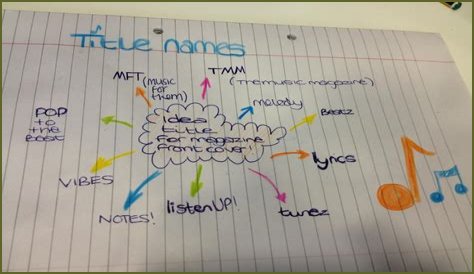 Title names
MFT (music
for
them)
TMM
(The music magazine)
melody
Beatz
lyrics
tunez
listen UP!
NOTES!
VIBES
POP
to
the
Beat
Idea
title
for magazine
front cover!